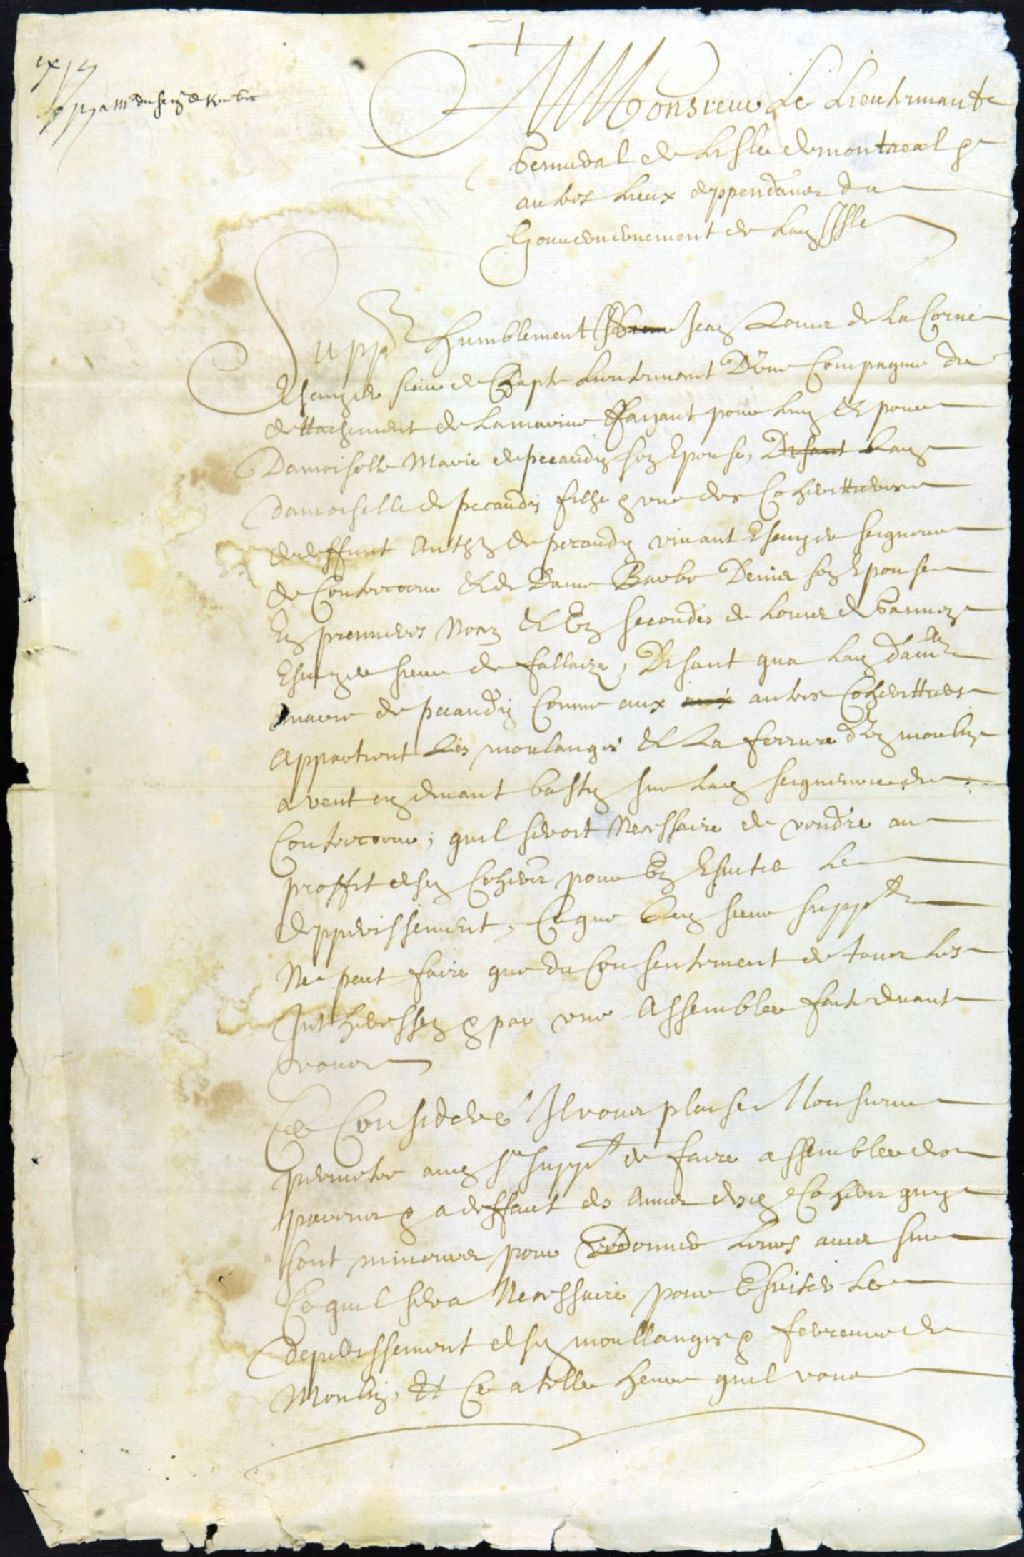 A Monsieur Le Lieutenant
General de Lisle de montreal &
autres Lieux deppendans du
Gouvernement de Lad Isle
Supp humblement Jean Louis de La Corne
Escuyer sieur de Chapte Lieutenant D'une Compagnie du
dettachement de La marine ffaizant pour luy Et pour
Damoiselle Marie de pecaudy son Epouse, Disant Lad
damoiselle de pecaudy fille & une des Coherittieres
de deffunt Anth de pecaudy vivant Escuyer seigneur
de Contrecoeur Et de Dame Barbe Denis son Epouse
En premieres Nopces Et En secondes de Louis de Gannes
Escuyer sieur de fallaize, Disant qua Lad damlle
marie de pecaudy Comme aux autres Coherittiers
appartient Les moulanges Et La ferrure d'un moulin
a vent cy devant basty sur Lad seigneurie de
Contrecoeur; quil seroit Necessaire de vendre au
proffit desd Coheirs pour En Esvitter Le
depperissement, Ce que Led sieur suppt
Ne peut faire que du Consentement de tous Les
Intheressez & par une Assemblee faite devant
vous
Ce Consideré Il vous plaise Monsieur
permettre aud sr suppt de faire assembler des
parens & a deffaut des Amis desd Coheirs quy
sont mineurs pour donner Leurs avis sur
Ce quil sera Necessaire pour Esviter Le
deperissement desd moullanges & ferreure de
Moulin, Et Ce a telle heure quil vous